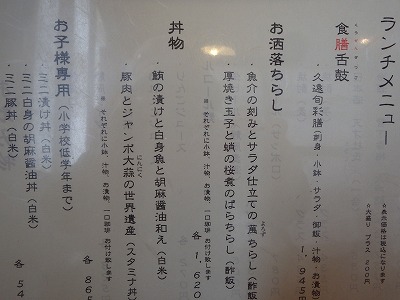 ランチメニュー
△表示価格は税込になります
△大盛り プラス 200円
食膳舌鼓
・久遠旬彩膳(刺身・小鉢・サラダ・御飯・汁物・お漬物
1,945
お洒落ちらし
・魚介の刻みとサラダ仕立ての萬ちらし(酢飯)
・厚焼き玉子と蛸の桜煮のばらちらし(酢飯)
※ それぞれに小鉢、汁物、お漬物、一口珈琲 お付け致します
各 1,620
丼物
・鮪の漬けと白身魚と胡麻醤油和え(白米)
・豚肉とジャンボ大蒜の世界遺産(スタミナ丼)
※ それぞれに小鉢、汁物、お漬物、一口珈琲 お付け致します
各 865
お子様専用(小学校低学年まで)
・ミニ漬け丼(白米)
・ミニ白身の胡麻醤油丼(白米)
・ミニ豚丼(白米)
各 54